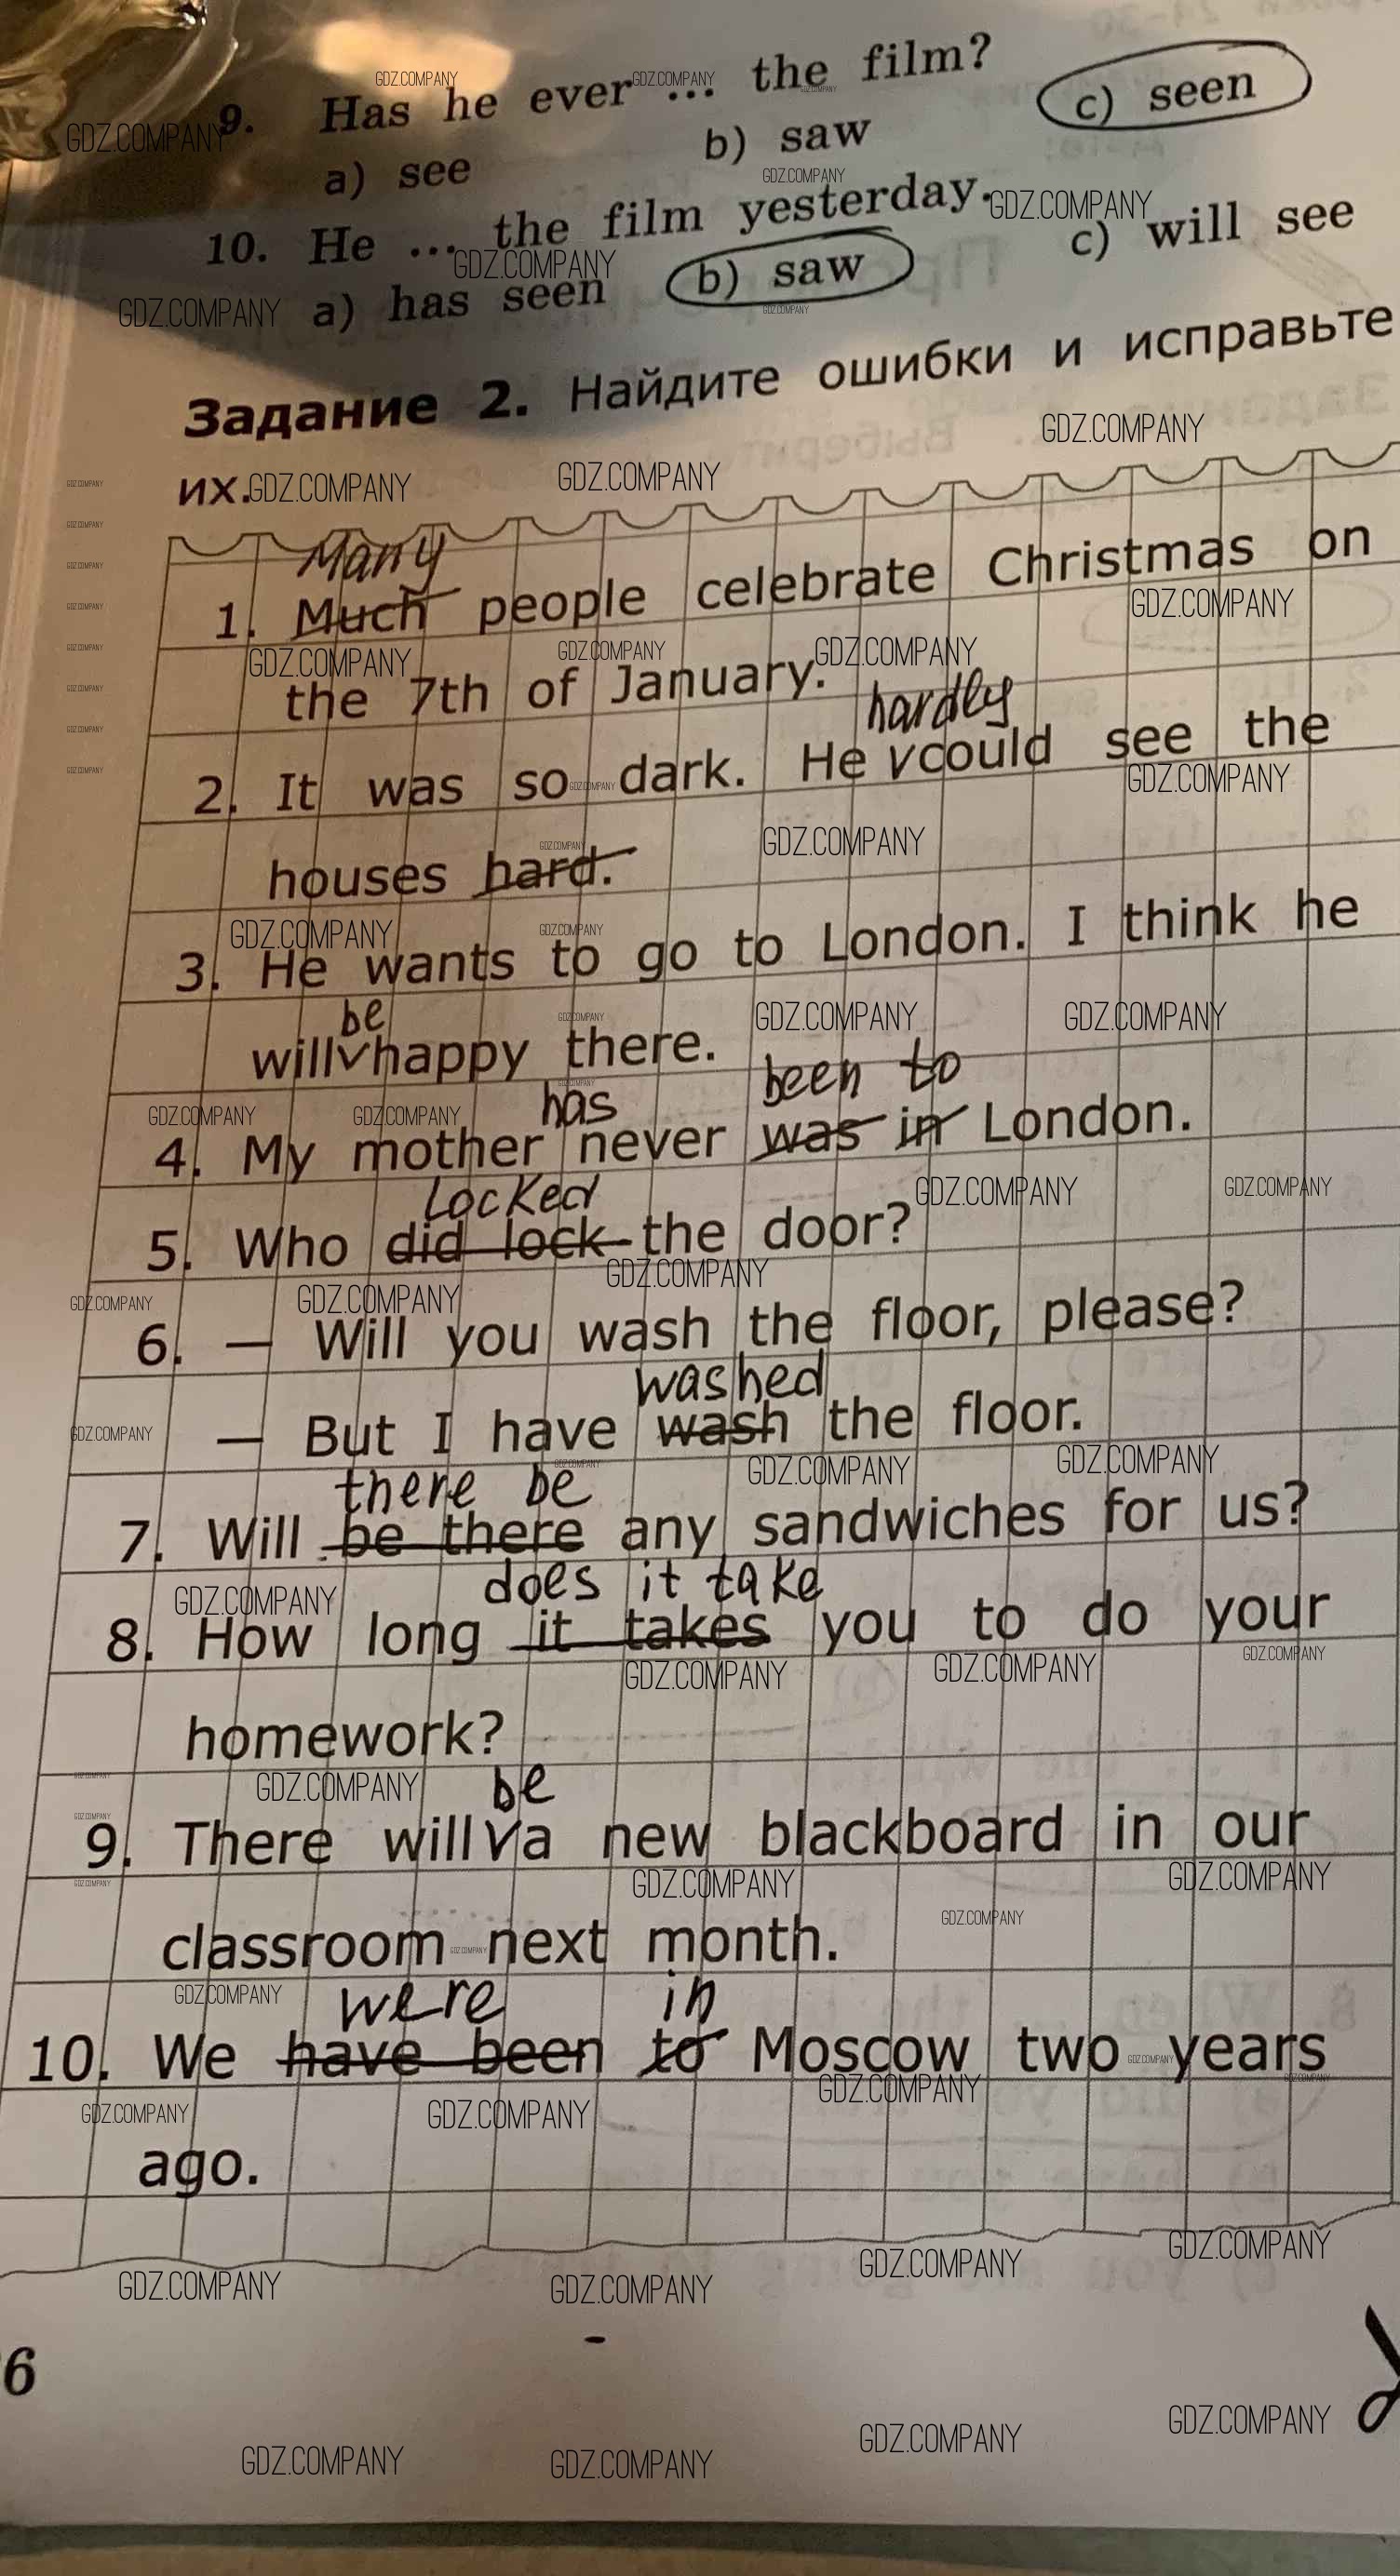 9. Has he ever ... the film?
a) see b) saw c) seen
10. He ... the film yesterday.
a) has seen b) saw c) will see
Задание 2. Найдите ошибки и исправьте
их.
Many
1. Much people celebrate Christmas on
the 7th of January.
hardly
2. It was so dark. He V could see the
houses hard.
3. He wants to go to London. I think he
be
will V happy there.
has been to
4. My mother never was in London.
Locked
5. Who did lock the door?
6. — Will you wash the floor, please?
washed
— But I have wash the floor.
there be
7. Will be there any sandwiches for us?
does it take
8. How long it takes you to do your
homework?
be
9. There will V a new blackboard in our
classroom next month.
were in
10. We have been to Moscow two years
ago.
6
GDZ.COMPANY